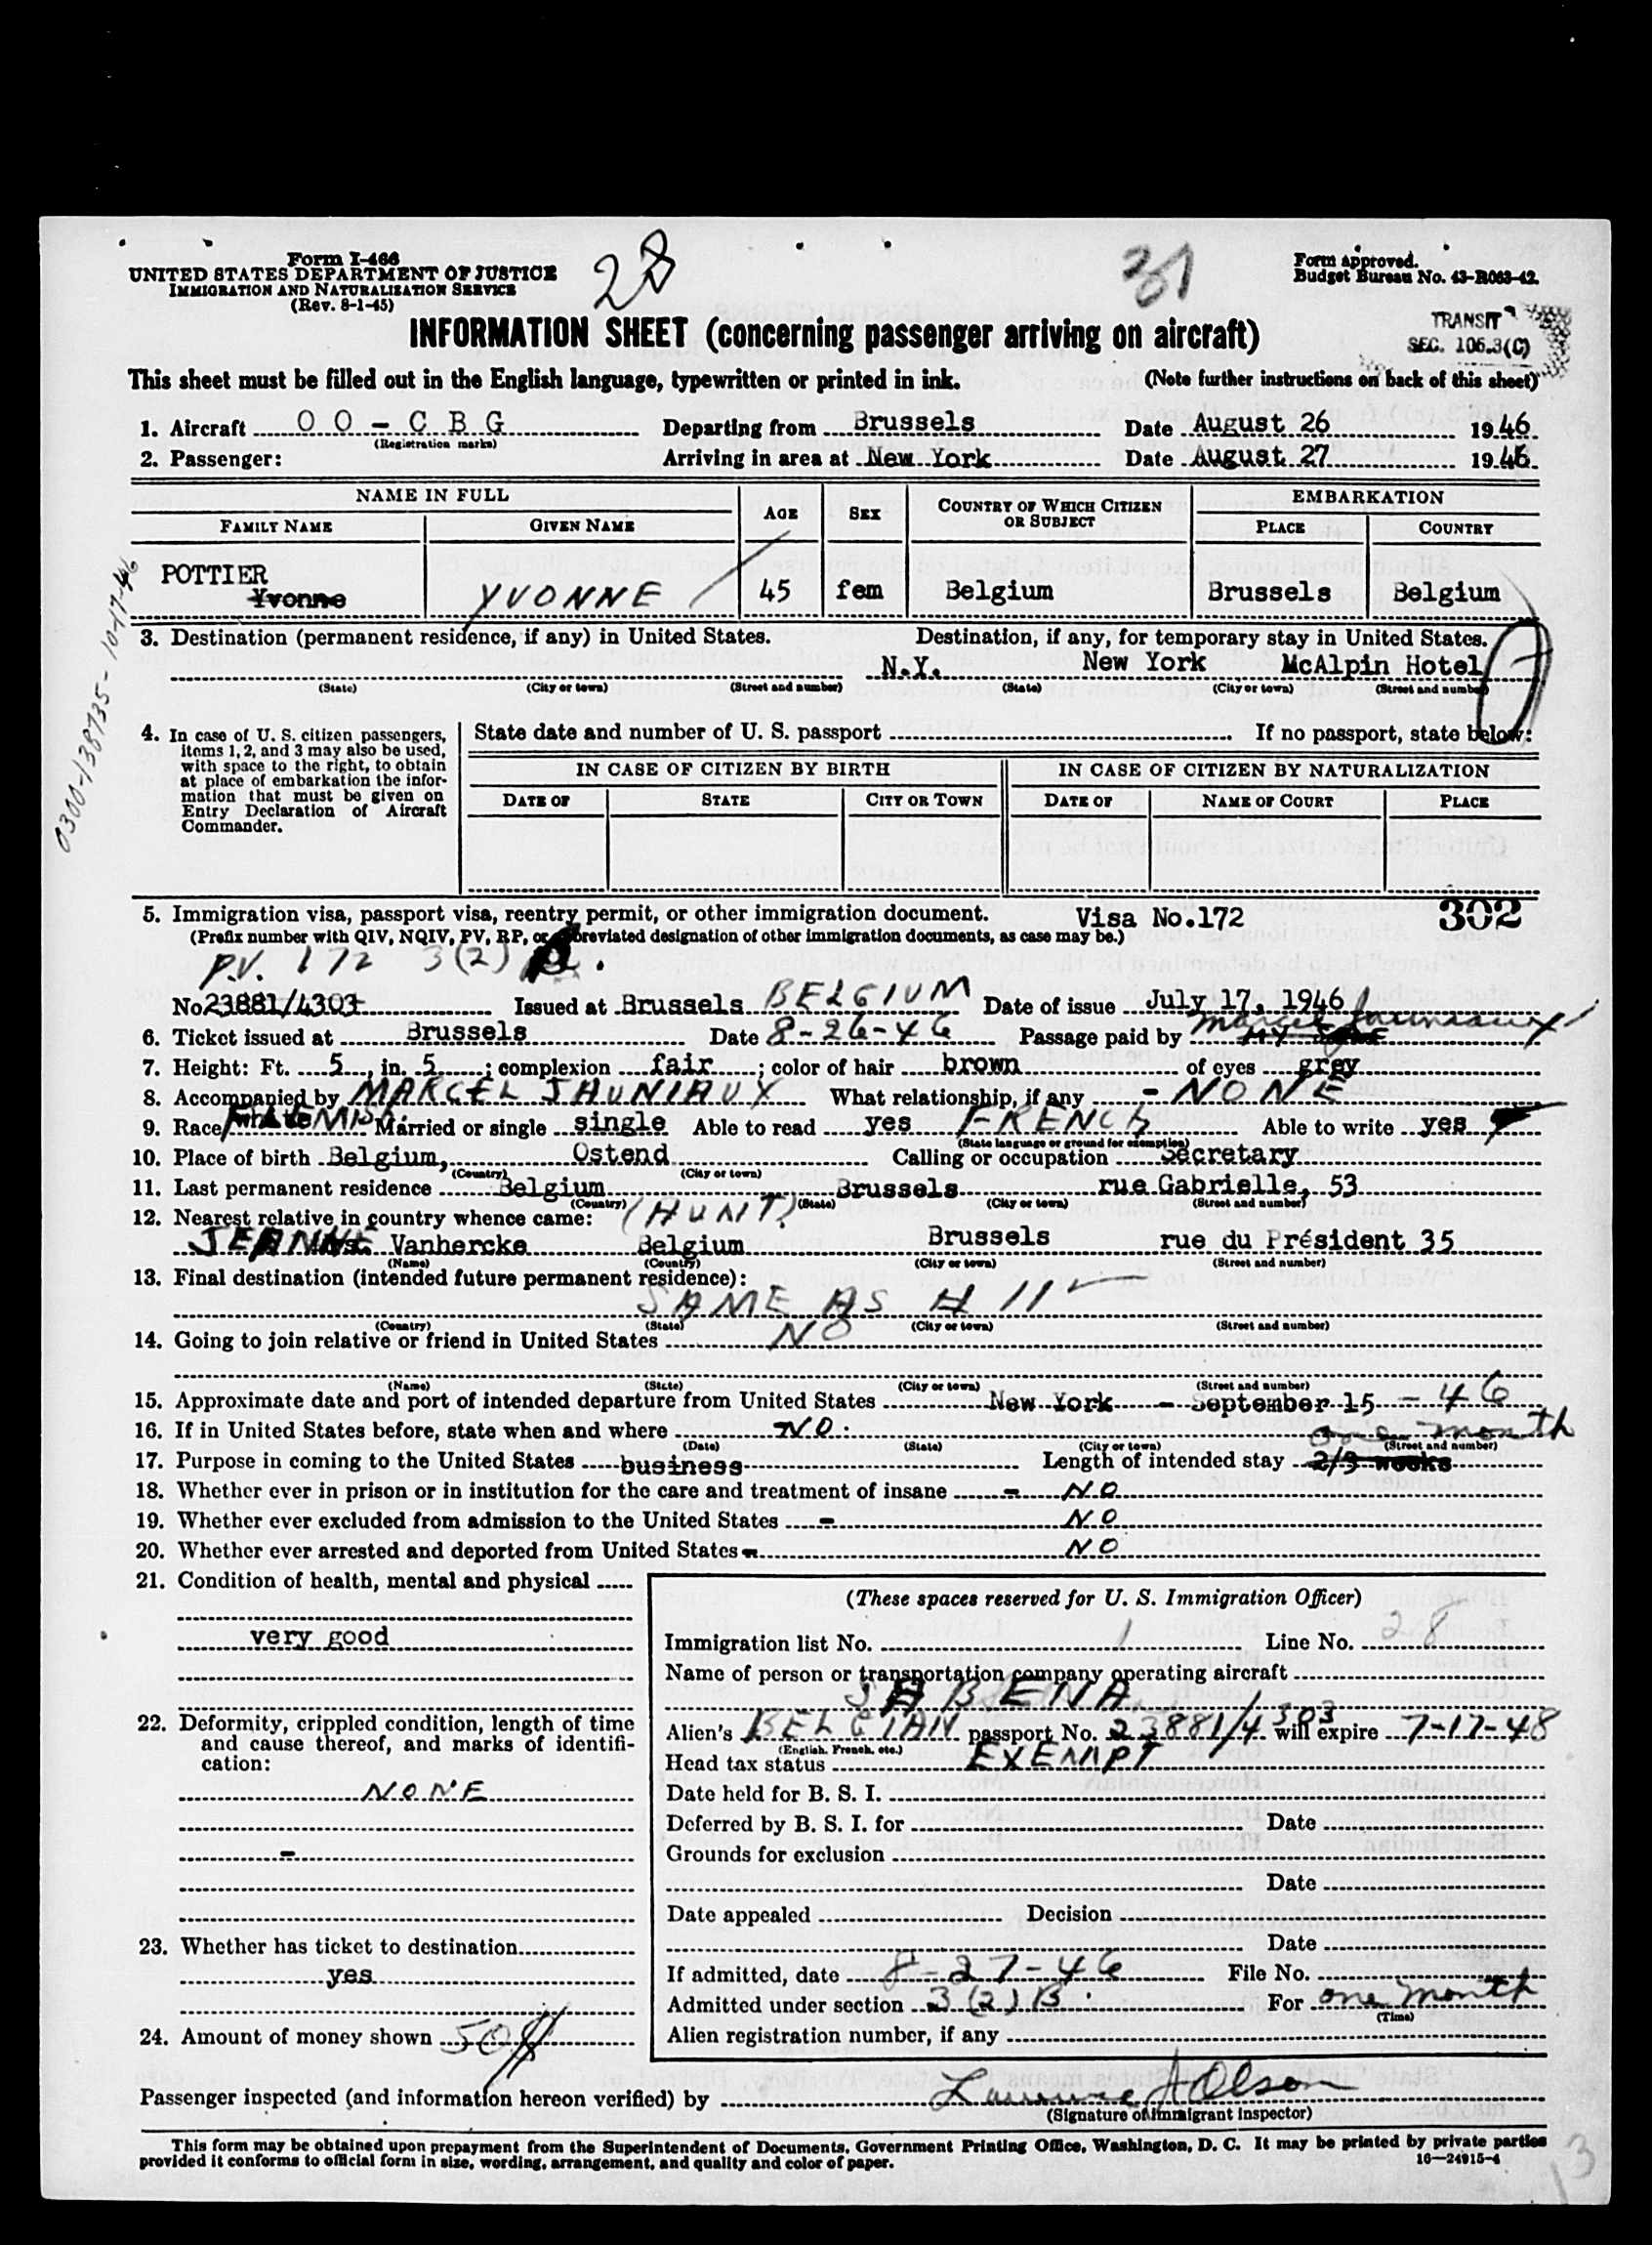 Form I-466
UNITED STATES DEPARTMENT OF JUSTICE
IMMIGRATION AND NATURALIZATION SERVICE
(Rev. 8-1-45)
28
Form approved.
Budget Bureau No. 43-R063-42.
TRANSIT
SEC. 106.3(C)
INFORMATION SHEET (concerning passenger arriving on aircraft)
This sheet must be filled out in the English language, typewritten or printed in ink. (Note further instructions on back of this sheet)
1. Aircraft OO-CBG Departing from Brussels Date August 26 1946.
(Registration marks)
2. Passenger: Arriving in area at New York Date August 27 1946.
NAME IN FULL AGE SEX COUNTRY OF WHICH CITIZEN OR SUBJECT EMBARKATION
FAMILY NAME GIVEN NAME PLACE COUNTRY
POTTIER
Yvonne YVONNE 45 fem Belgium Brussels Belgium
0300-138735- 10-17-46
3. Destination (permanent residence, if any) in United States. Destination, if any, for temporary stay in United States.
N.Y. New York McAlpin Hotel
(State) (City or town) (Street and number) (State) (City or town) (Street and number)
4. In case of U. S. citizen passengers, items 1, 2, and 3 may also be used, with space to the right, to obtain at place of embarkation the information that must be given on Entry Declaration of Aircraft Commander.
State date and number of U. S. passport If no passport, state below:
IN CASE OF CITIZEN BY BIRTH IN CASE OF CITIZEN BY NATURALIZATION
DATE OF STATE CITY OR TOWN DATE OF NAME OF COURT PLACE
5. Immigration visa, passport visa, reentry permit, or other immigration document. Visa No.172 302
(Prefix number with QIV, NQIV, PV, RP, or abbreviated designation of other immigration documents, as case may be.)
P.V. 172 3(2)
No 23881/4303 Issued at Brussels BELGIUM Date of issue July 17, 1946
6. Ticket issued at Brussels Date 8-26-46 Passage paid by Marcel Jauniaux
7. Height: Ft. 5, in. 5; complexion fair; color of hair brown of eyes grey
8. Accompanied by MARCEL JAUNIAUX What relationship, if any - NONE
9. Race FLEMISH Married or single single Able to read yes FRENCH Able to write yes
(State language or ground for exemption)
10. Place of birth Belgium, Ostend Calling or occupation Secretary
(Country) (City or town)
11. Last permanent residence Belgium Brussels rue Gabrielle, 53
(Country) (State) (City or town) (Street and number)
12. Nearest relative in country whence came: (AUNT)
JEANNE Vanhercke Belgium Brussels rue du Président 35
(Name) (Country) (City or town) (Street and number)
13. Final destination (intended future permanent residence):
SAME AS # 11
(Country) (State) (City or town) (Street and number)
14. Going to join relative or friend in United States NO
(Name) (State) (City or town) (Street and number)
15. Approximate date and port of intended departure from United States New York - September 15 - 46
16. If in United States before, state when and where NO.
(Date) (State) (City or town) (Street and number)
one month
17. Purpose in coming to the United States business Length of intended stay 2/3 weeks
18. Whether ever in prison or in institution for the care and treatment of insane - NO
19. Whether ever excluded from admission to the United States - NO
20. Whether ever arrested and deported from United States - NO
21. Condition of health, mental and physical
very good
22. Deformity, crippled condition, length of time and cause thereof, and marks of identification:
NONE
-
23. Whether has ticket to destination
yes
24. Amount of money shown 50 $
(These spaces reserved for U. S. Immigration Officer)
Immigration list No. 1 Line No. 28
Name of person or transportation company operating aircraft
SABENA
Alien's BELGIAN passport No. 23881/4303 will expire 7-17-48
(English, French, etc.)
Head tax status EXEMPT
Date held for B. S. I.
Deferred by B. S. I. for Date
Grounds for exclusion
Date
Date appealed Decision
Date
If admitted, date 8-27-46 File No.
Admitted under section 3(2)B. For one month
(Time)
Alien registration number, if any
Passenger inspected (and information hereon verified) by Lawrence A Olson
(Signature of immigrant inspector)
This form may be obtained upon prepayment from the Superintendent of Documents, Government Printing Office, Washington, D. C. It may be printed by private parties
provided it conforms to official form in size, wording, arrangement, and quality and color of paper. 16—24915-4
13